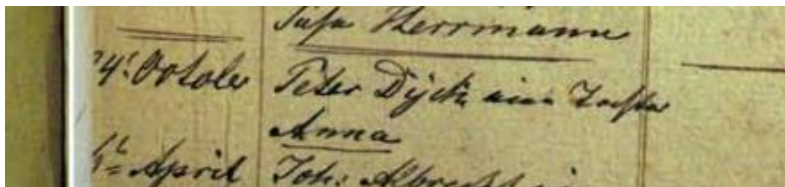 Herrmann
4t October Peter Dÿck eine Tochter
Anna
April Joh: Albrecht